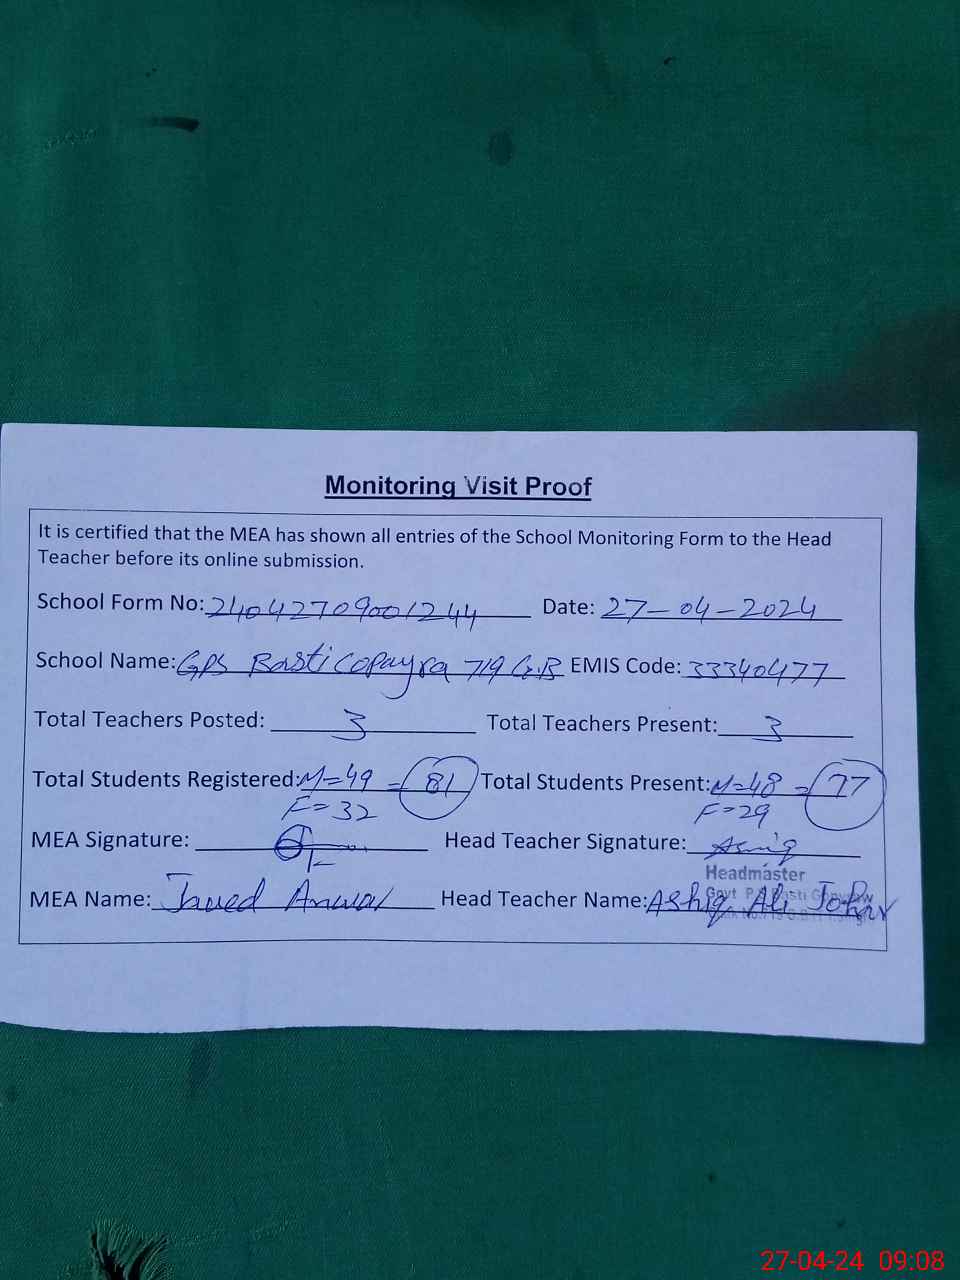 Monitoring Visit Proof
It is certified that the MEA has shown all entries of the School Monitoring Form to the Head
Teacher before its online submission.
School Form No: 24042709001244 Date: 27-04-2024
School Name: GPS Basti Copayra 719 G.B EMIS Code: 33340477
Total Teachers Posted: 3 Total Teachers Present: 3
Total Students Registered: M=49 = 81 Total Students Present: M=48 = 77
F=32 F=29
MEA Signature: Head Teacher Signature: Ashiq
Headmaster
MEA Name: Javed Anwar Head Teacher Name: Ashiq Ali
Govt
27-04-24 09:08